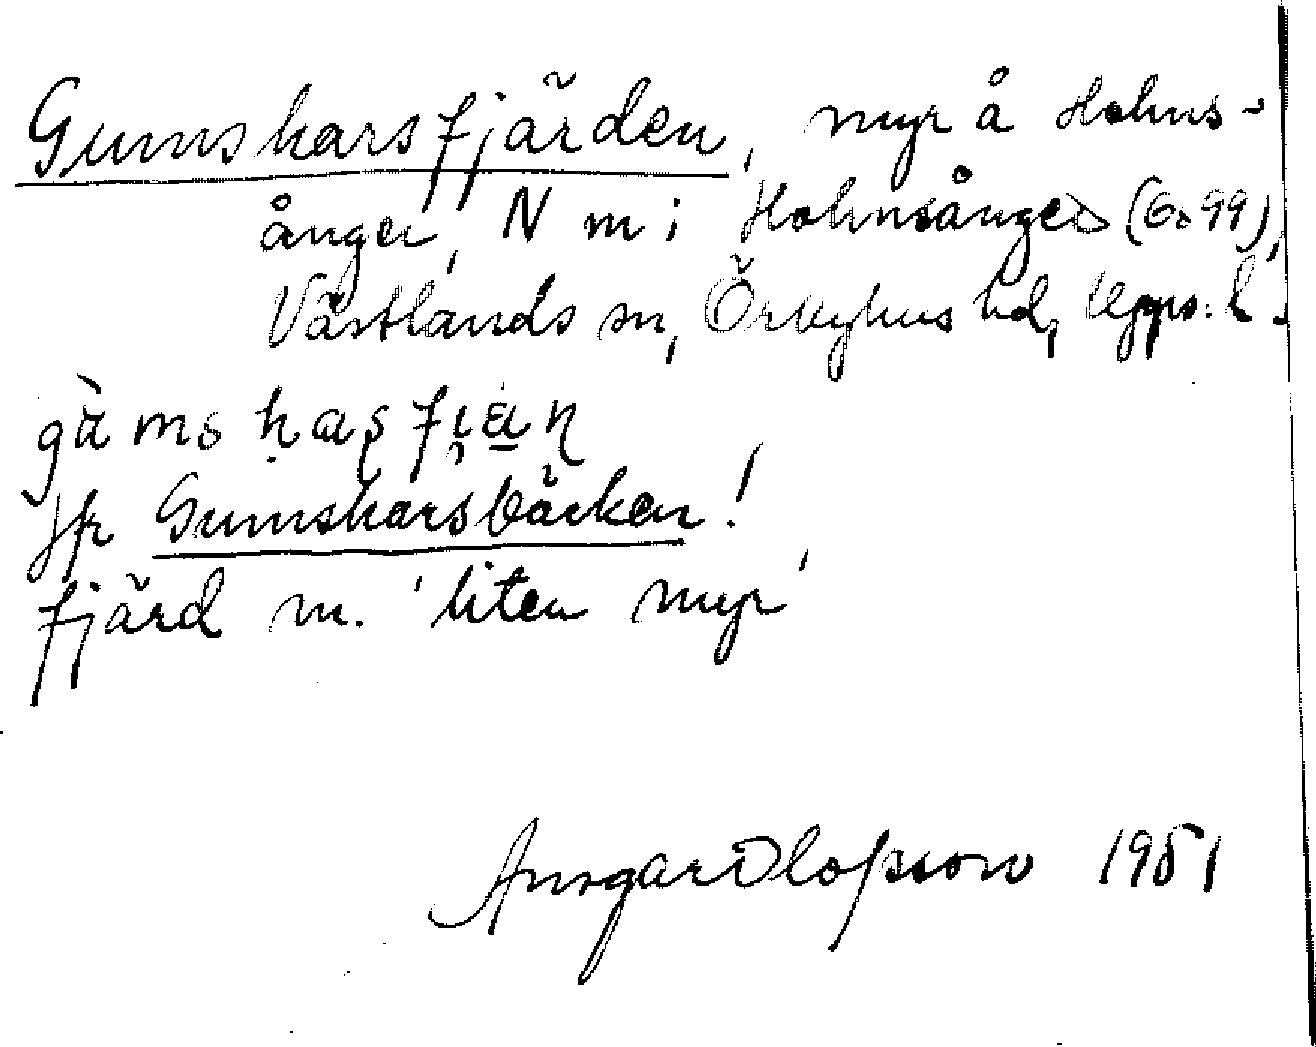 Gumsharsfjärden, myr å Hohns-
ånger, N m i Hohnsånger (Go 99),
Västlands sn, Örbyhus hd, Upps. l.
jfr Gumsharsbäcken!
fjärd m. 'liten myr'
Ansgar Olofsson 1951